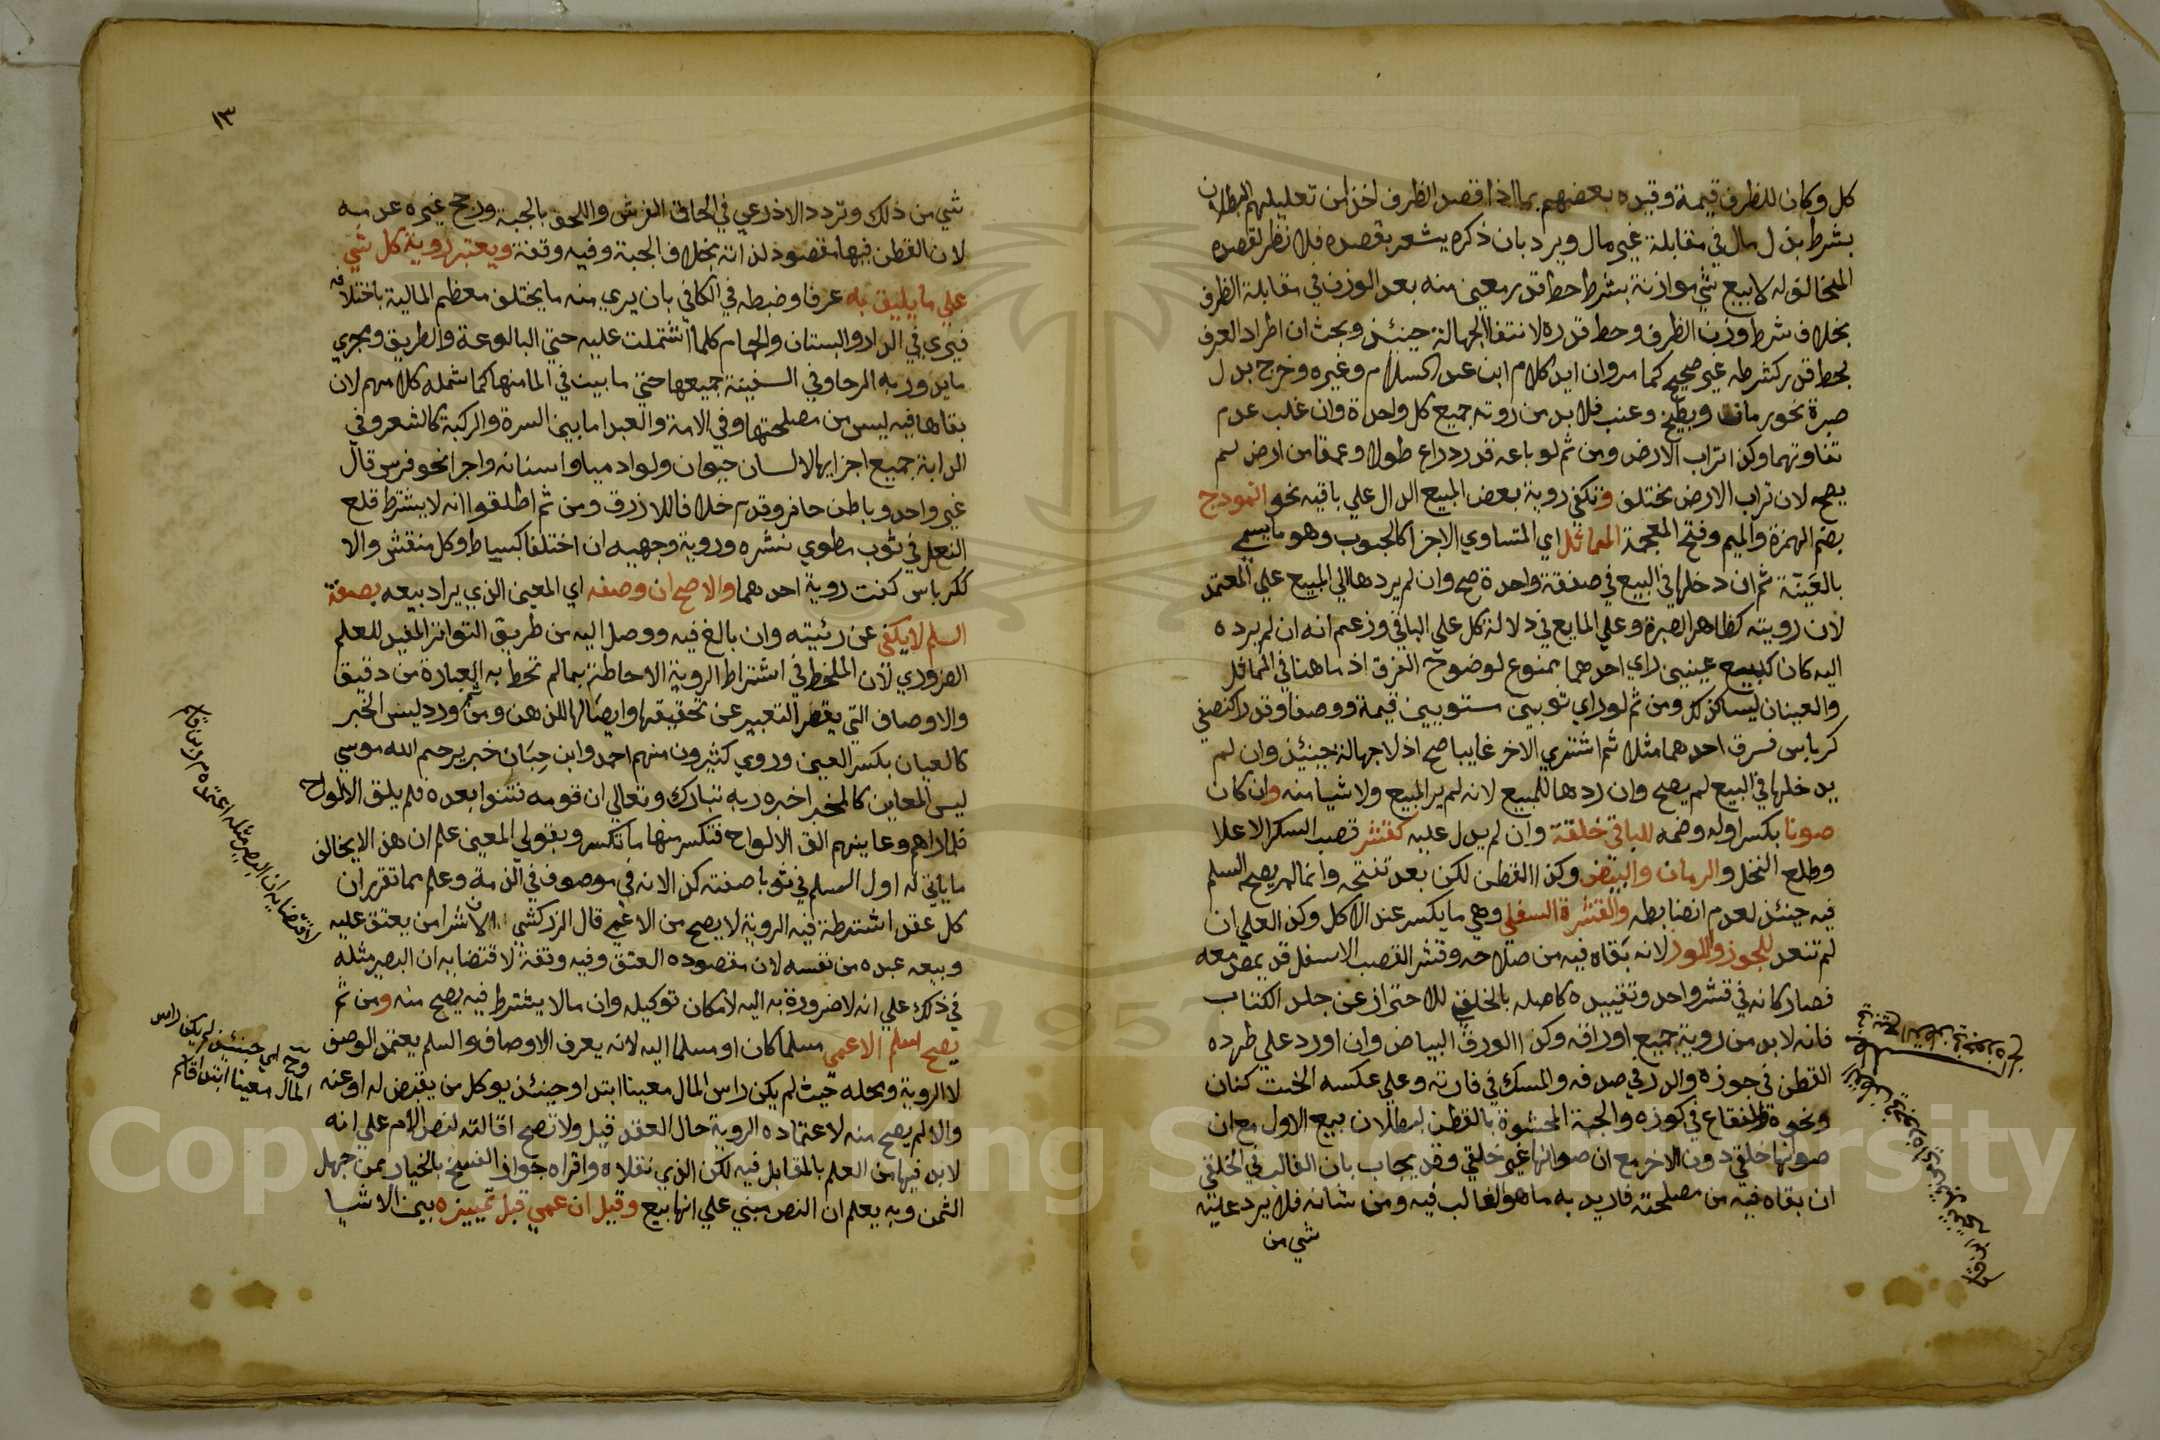 كل وكان للظرف قيمة وقيده بعضهم بما اذا قصد الظرف اخذا من تعليلهم البطلان
بشرط بذل مال في مقابلة غير مال ويرد بان ذكره يشعر بقصده فلا نظر لقصده
المخالف له لا بيع شي موازنة بشرط حط قدر معين منه بعد الوزن في مقابلة الظرف
بخلاف شرط وزن الظرف وحط قدره لانتفا الجهالة حينئذ وبحث ان اطراد العرف
بحط قدر كشرطه غير صحيح كما مر وان ايد كلام ابن عبد السلام وغيره وخرج بدل
صبرة نحو رمان وبطيخ وعنب فلا بد من روية جميع كل واحدة وان غلب عدم
تفاوتهما وكذا تراب الارض ومن ثم لو باعه قدر ذراع طولا وعمقا من ارض لم
يصح لان تراب الارض مختلف وتكفي روية بعض المبيع الدال علي باقيه نحو النموذج
بضم الهمزة والميم وفتح المعجمة المماثل اي المتساوي الاجزا كالحبوب وهو ما يسمي
بالعينة ثم ان دخلها في البيع في صفقة واحدة صح وان لم يردها الي المبيع علي المعتمد
لان رويته كظاهر الصبرة وعلي المايع في دلالة كل علي الباقي وزعم انه ان لم يرده
اليه كان كبيع عينين راي احدهما ممنوع لوضوح الفرق اذ ما هنا في المماثل
والعينان ليسا كذلك ومن ثم لو راي ثوبين مستويين قيمة ووصفا وقدرا كنصفي
كرباس فسرق احدهما مثلا ثم اشتري الاخر غايبا صح اذ لا جهالة حينئذ وان لم
يدخلها في البيع لم يصح وان ردها للمبيع لانه لم ير المبيع ولا شيا منه وان كان
صونا بكسر اوله وضمه للباقي خلقة وان لم يدل عليه كقشر قصب السكر الاعلا
وطلع النخل والرمان والبيض وكذا القطن لكن بعد تفتحه وانما لم يصح السلم
فيه حينئذ لعدم انضباطه والقشرة السفلي وهي ما يكسر عند الاكل وكذا العليا ان
لم تنعقد للجوز واللوز لانه بقاه فيه من صلاحه وقشر القصب الاسفل قد يمص معه
فصار كانه في قشر واحد وتقييده كاصله بالخلقي للاحتراز عن جلد الكتاب
فانه لا بد من روية جميع اوراقه وكذا الورق البياض وان اورد علي طرده
القطن في جوزه والدر في صدفه والمسك في فارته وعلي عكسه الخشكنان
ونحوه والفقاع في كوزه والجبة المحشوة بالقطن لبطلان بيع الاول مع ان
صوانها خلقي دون الاخر مع ان صوانها غير خلقي وقد يجاب بان الغالب في الخلقي
ان بقاه فيه من مصلحته فاريد به ما هو الغالب فيه ومن شانه فلا يرد عليه
شي من
١٣
شي من ذلك وتردد الاذرعي في الحاق الفرش واللحف بالجبة ورجح غيره عدمه
لان القطن فيها مقصود لذاته بخلاف الجبة وفيه وقفة ويعتبر روية كل شي
علي ما يليق به عرفا وضبطه في الكافي بان يري منه ما يختلف معظم المالية باختلافه
فيري في الدار والبستان والحمام كلما اشتملت عليه حتي البالوعة والطريق ومجري
ما يدور به الرحا وفي السفينة جميعها حتي ما بين في الما منها كما شمله كلامهم لان
بقاها فيه ليس من مصلحتها وفي الامة والعبد ما بين السرة والركبة كالشعر وفي
الدابة جميع اجزايها لا لسان حيوان ولو ادميا واسنانه واجرا نحو فرس قال
غير واحد وباطن حافر وقدم خلافا للاذرق ومن ثم اطلقوا انه لا يشترط قلع
النعل في ثوب مطوي نشره وروية وجهيه ان اختلفا كبساط وكل منقش والا
ككرباس كفت روية احدهما والاصح ان وصفه اي المعين الذي يراد بيعه بصفة
السلم لا يكفي عن رئيته وان بالغ فيه ووصل اليه من طريق التواتر المفيد للعلم
الضروري لان الملحظ في اشتراط الروية الاحاطة بما لم تحط به العبارة من دقيق
والاوصاف التي يقصر التعبير عن تحقيقها وايصالها للذهن ومن ثم ورد ليس الخبر
كالعيان بكسر العين وروي كثيرون منهم احمد وابن حبان خبر يرحم الله موسي
ليس المعاين كالمخبر اخبره ربه تبارك وتعالي ان قومه فتنوا بعده فلم يلق الالواح
فلما راهم وعاينهم القي الالواح فتكسر منها ما تكسر وبقولي المعين علم ان هذا لا يخالف
ما ياتي له اول السلم في ثوبا صفته كذا لانه في موصوف في الذمة وعلم مما تقرر ان
كل عقد اشترطت فيه الروية لا يصح من الاعمي قال الزركشي الا شرا من يعتق عليه
وبيعه عبده من نفسه لان مقصوده العتق وفيه وقفة لاقتضايه ان البصير مثله
في ذلك علي انه لا ضرورة به اليه لامكان توكيله وان ما لا يشترط فيه يصح منه ومن ثم
يصح سلم الاعمي مسلما كان او مسلما اليه لانه يعرف الاوصاف والسلم يعتمد الوصف
لا الروية ومحله حيث لم يكن راس المال معينا ابتدا وحينئذ يوكل من يقبض له او عنه
والا لم يصح منه لاعتماده الروية حال العقد قيل ولا تصح اقالته لنص الام علي انه
لا بد فيها من العلم بالمقابل فيه لكن الذي نقلاه واقراه جواز الفسخ بالخيار ممن جهل
الثمن وبه يعلم ان النص مبني علي انها بيع وقيل ان عمي قبل تمييزه بين الاشيا
لاقتضايه ان البصير مثله اعتمده م ر ابن قاسم
وح اي حينئذ لم يكن راس
المال معينا ابتدا قاسم
Copyright © King Saud University
1957